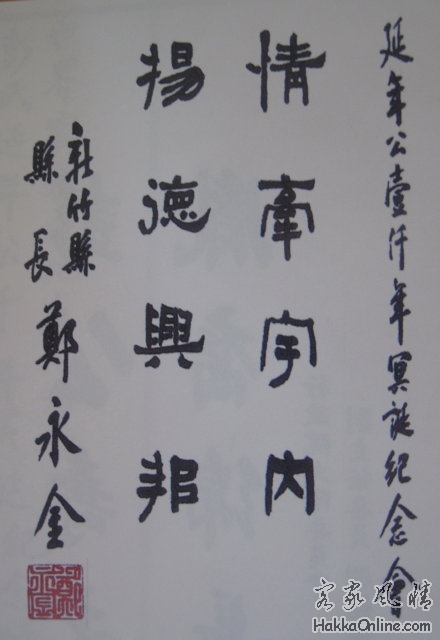 延年公壹仟年冥誕紀念會
情牽宇內
揚德興邦
新竹縣
縣長 鄭永金
客家風情
HakkaOnline.com